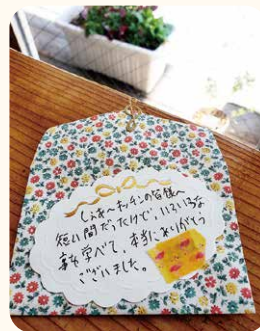 しぇあーキッチンの皆様へ
短い間だったけど、いろいろな
事を学べて、本当にありがとう
ございました。